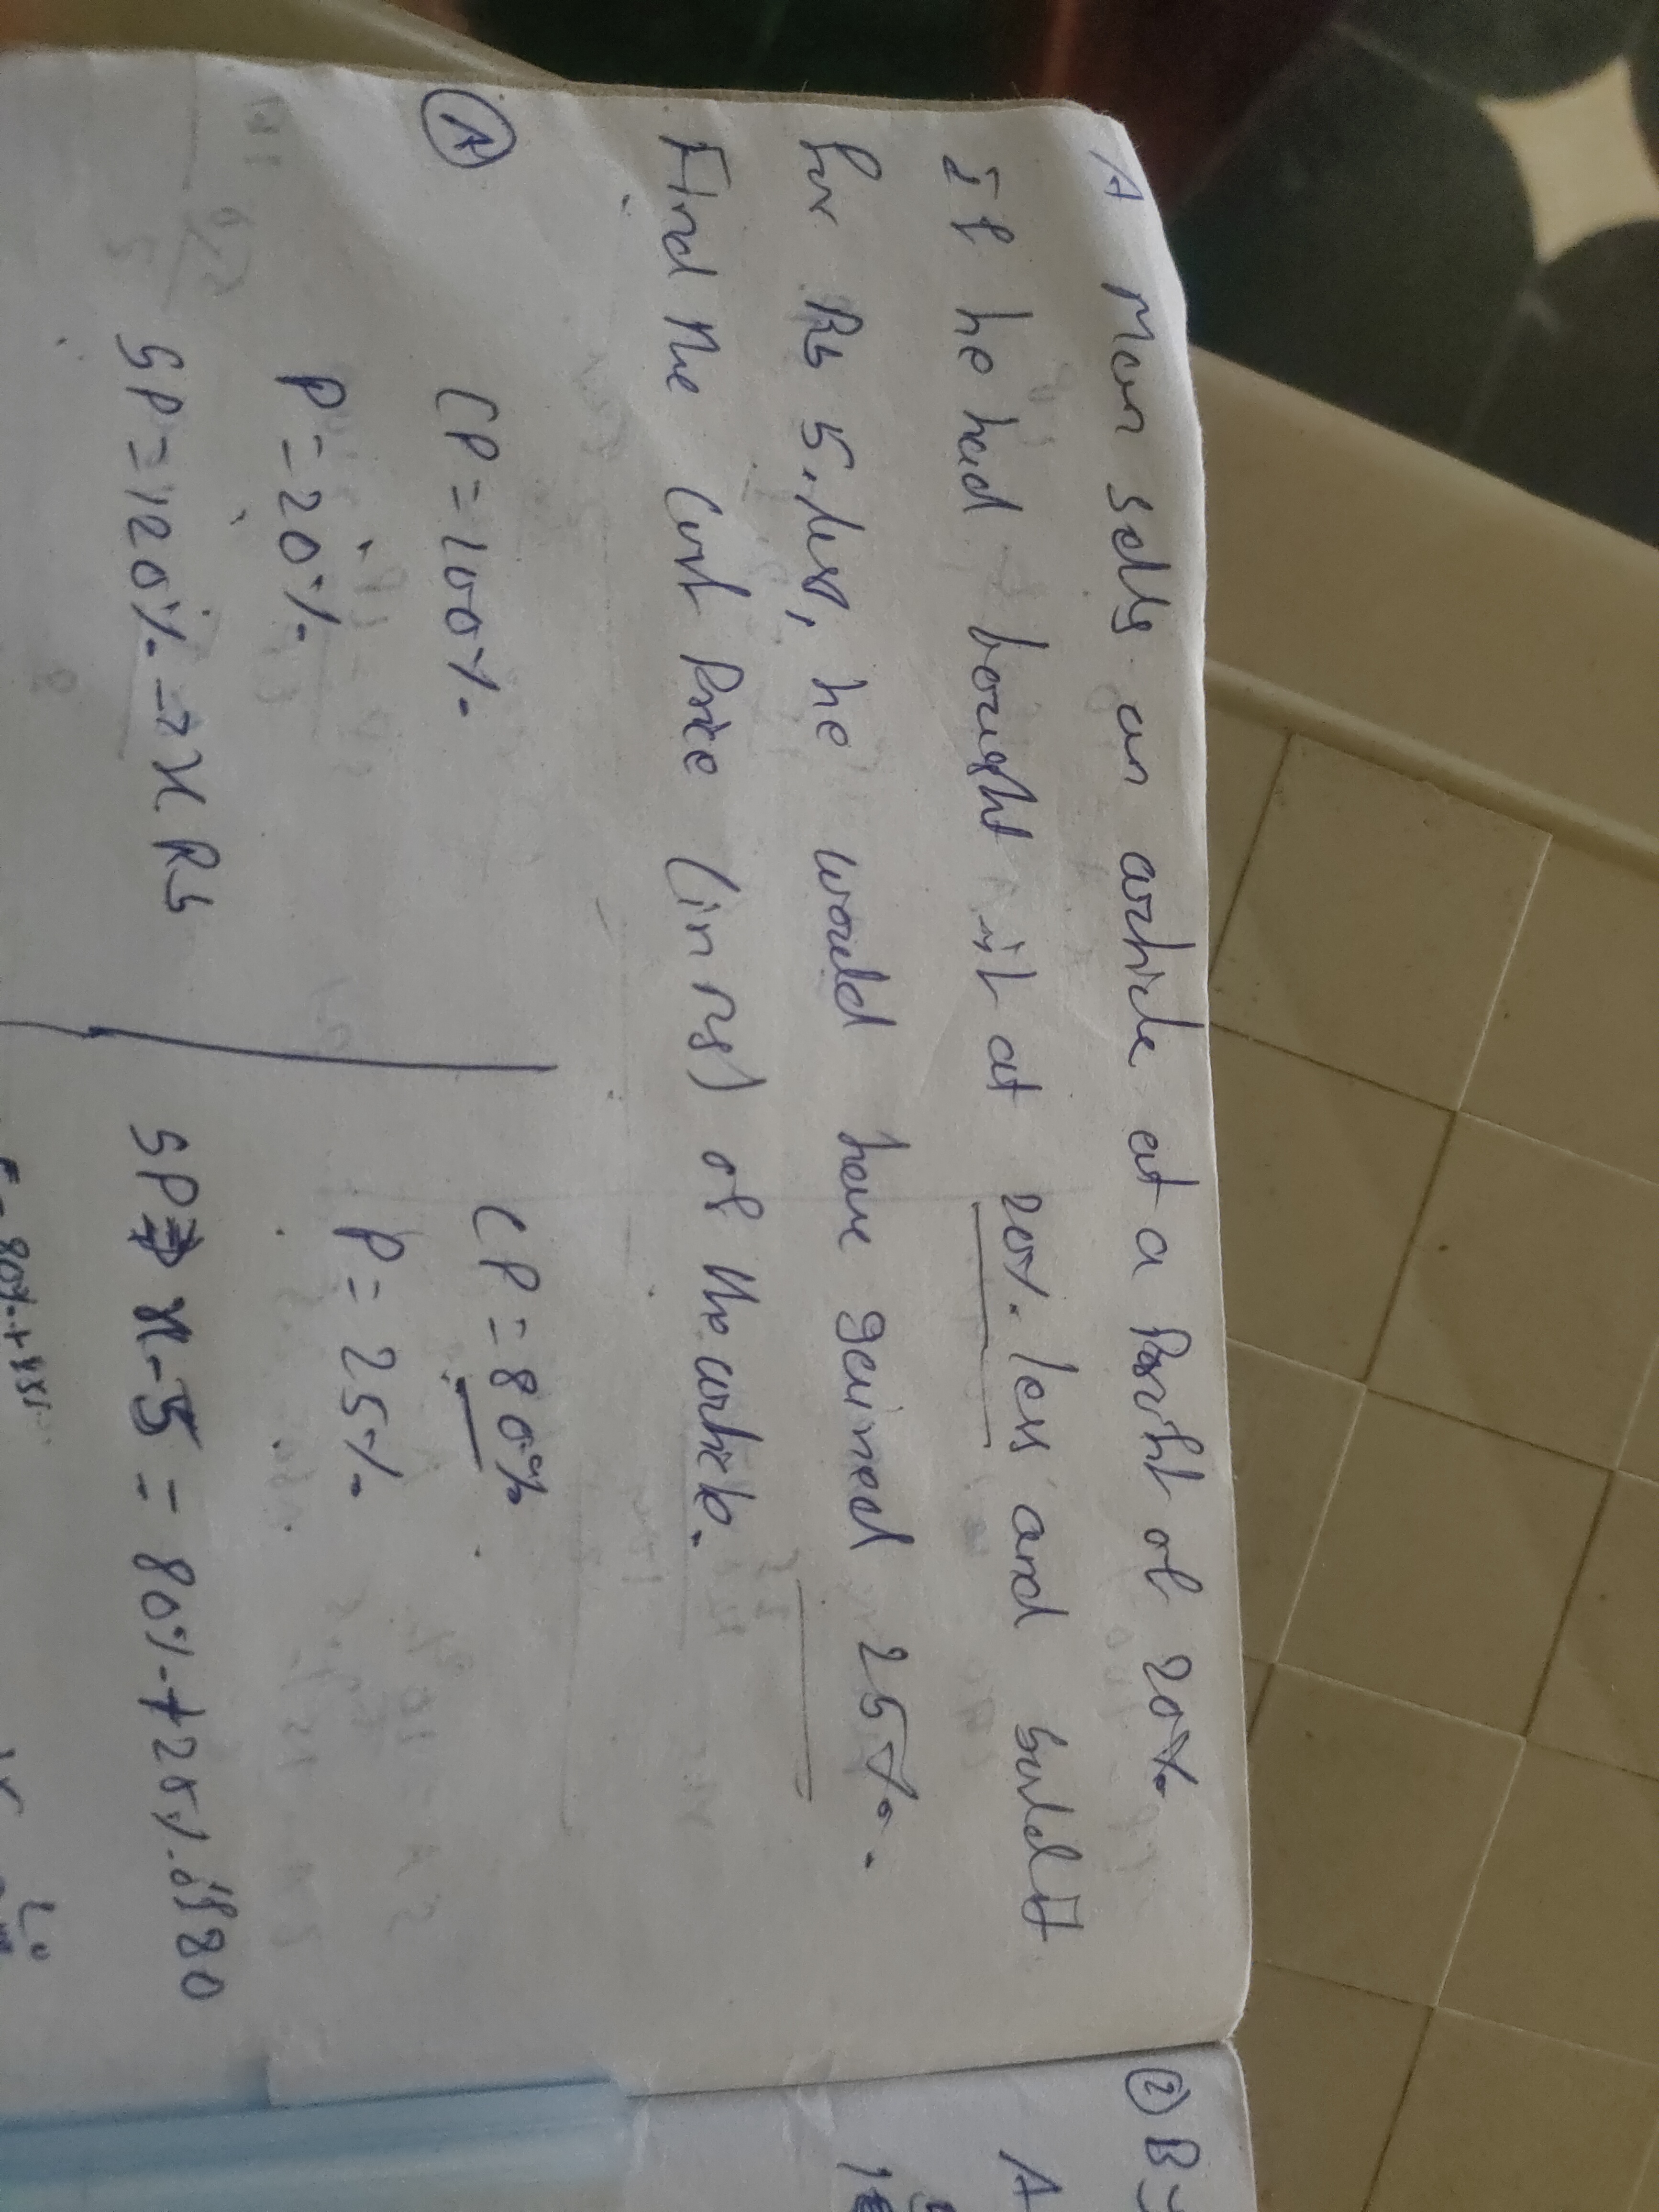 A Man sells an article at a Profit of 20%.
If he had bought it at 20% less and sold it
for Rs 5 less, he would have gained 25%.
Find the Cost Price (in rs) of the article.
A
CP = 100%
P = 20%
SP = 120% → x Rs
CP = 80%
P = 25%
SP x - 5 = 80% + 25% of 80
② B
A